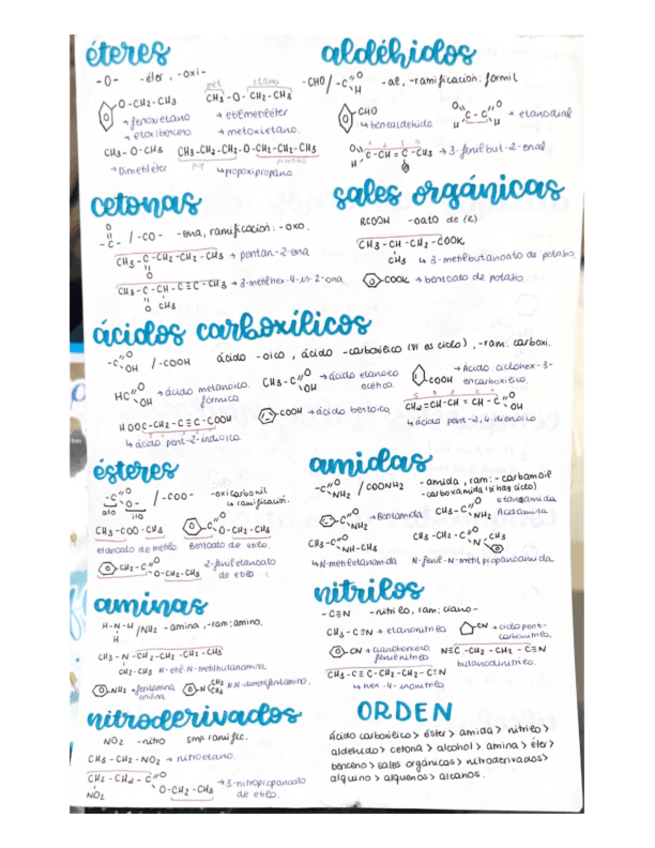 éteres
-O- -éter, -oxi-
met etano
O-CH2-CH3
CH3-O-CH2-CH3
→ fenoxietano → etilmetiléter
→ etoxibenceno → metoxietano.
CH3-O-CH3 CH3-CH2-CH2-O-CH2-CH2-CH3
→ Dimetiléter ↳ propoxipropano
aldéhidos
-CHO / -C=O H -al, -ramificación: formil
CHO
↳ bencaldehido → etanodial
→ 3-fenilbut-2-enal
cetonas
-C=O / -CO- -ona, ramificación: -oxo.
CH3-C-CH2-CH2-CH3 → pentan-2-ona
O
CH3-C-CH-C≡C-CH3 → 3-metilhex-4-in-2-ona
O CH3
sales orgánicas
RCOOM -oato de (R)
CH3-CH-CH2-COOK
CH3 ↳ 3-metilbutanoato de potasio.
COOK → benzoato de potasio.
ácidos carboxílicos
-C=O OH / -COOH ácido -oico, ácido -carboxílico (si es ciclo), -ram: carboxi.
HC=O OH → ácido metanoico. fórmico
CH3-C=O OH → ácido etanoico acético.
COOH → Ácido ciclohex-3-encarboxílico.
HOOC-CH2-C≡C-COOH
↳ ácido pent-2-indioico
COOH → ácido benzoico
CH2=CH-CH=CH-C=O OH
↳ ácido pent-2,4-dienoico
ésteres
-C=O O- / -COO- -oxicarbonil
↳ ramificación.
ato ilo
CH3-COO-CH3 C=O O-CH2-CH3
etanoato de metilo. Benzoato de etilo.
CH2-C=O O-CH2-CH3 2-feniletanoato de etilo
amidas
-C=O NH2 / CONH2 -amida, ram: -carbamoil
-carboxamida (si hay ciclo)
C=O NH2 → Benzamida CH3-C=O NH2 etanamida Acetamina
CH3-C=O NH-CH3 CH3-CH2-C=O N-CH3
↳ N-metiletanamida N-fenil-N-metilpropanoamida
aminas
H-N-H / NH2 -amina, -ram: amino.
H
CH3-N-CH2-CH2-CH2-CH3
CH2-CH3 N-etil-N-metilbutanamina
NH2 → fenilamina anilina N CH3 CH3 N,N-dimetilfenilamina.
nitrilos
-C≡N -nitrilo, ram: ciano-
CH3-C≡N → etanonitrilo CN → ciclopentcarbonitrilo.
CN → cianobenceno fenilnitrilo N≡C-CH2-CH2-C≡N
butanodinitrilo.
CH3-C≡C-CH2-CH2-C≡N
↳ hex-4-inonitrilo
nitroderivados
NO2 -nitro smp. ramific.
CH3-CH2-NO2 → nitroetano.
CH2-CH2-C=O O-CH2-CH3 → 3-nitropropanoato de etilo.
NO2
ORDEN
Ácido carboxílico > éster > amida > nitrilo >
aldehído > cetona > alcohol > amina > éter >
benceno > sales orgánicas > nitroderivados >
alquino > alquenos > alcanos.